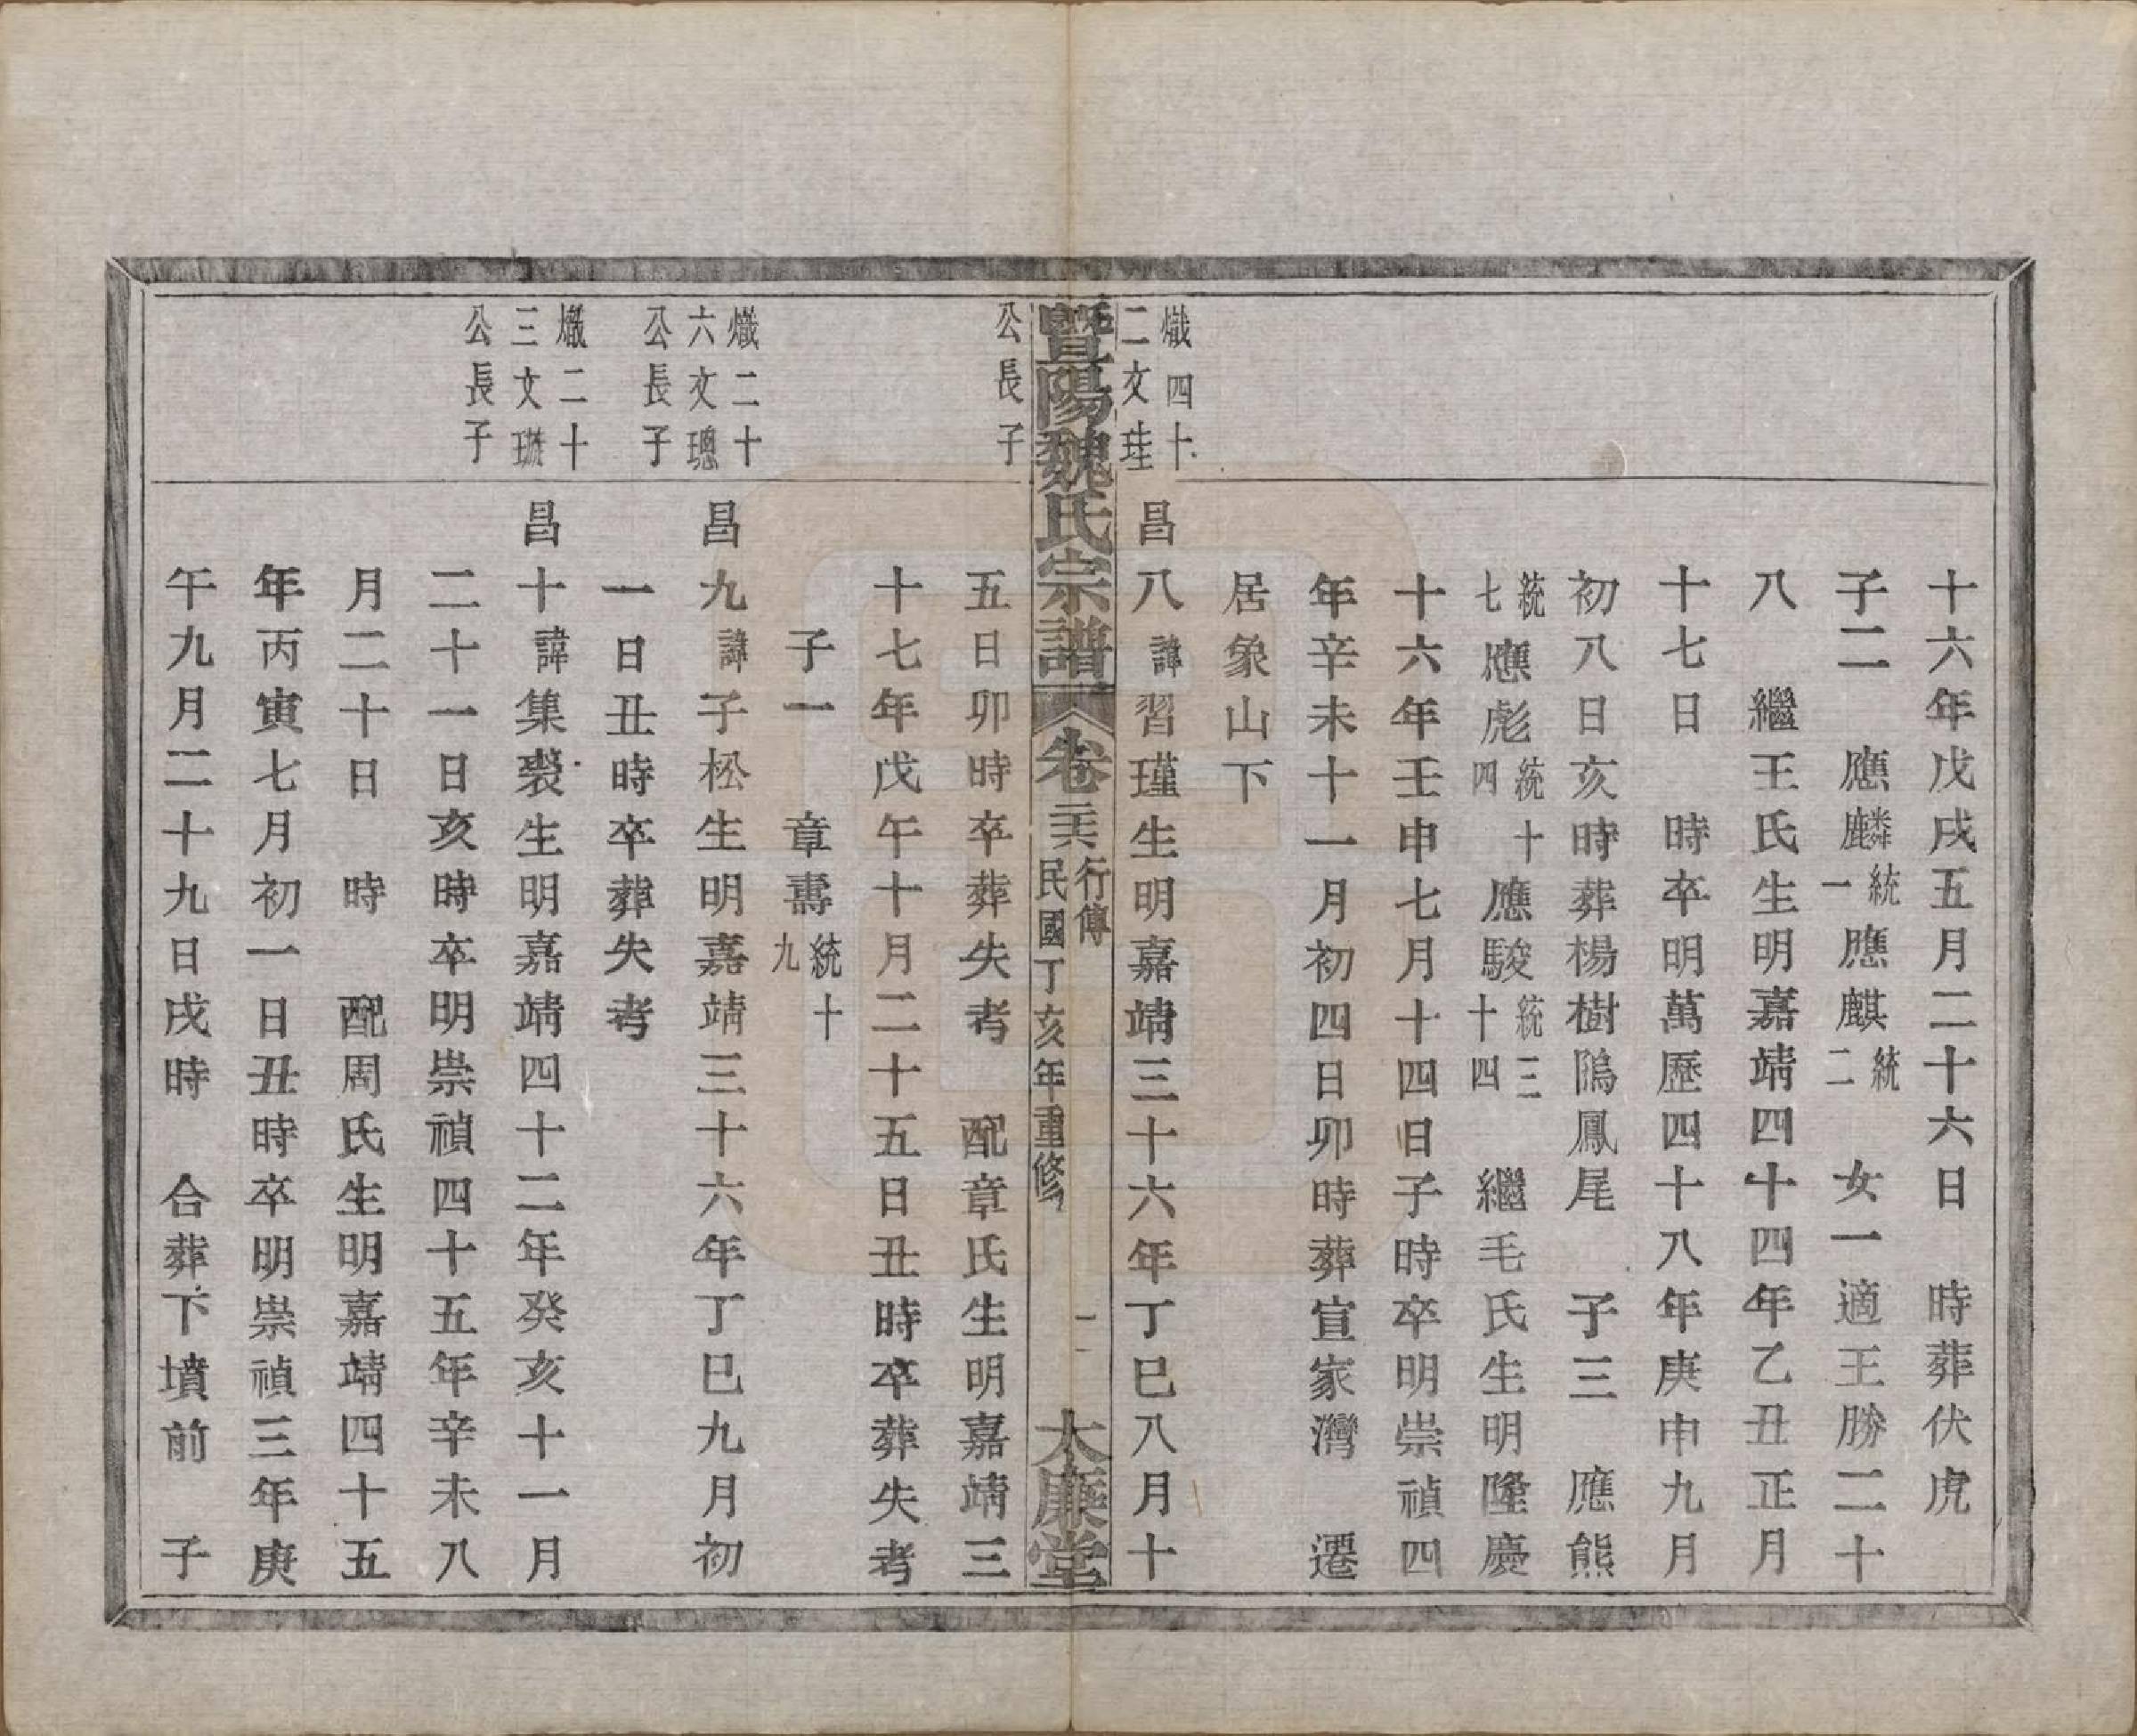 十六年戊戌五月二十六日　時葬伏虎
子二　應麟統一應麒統二　女一適王勝二十
八　繼王氏生明嘉靖四十四年乙丑正月
十七日　時卒明萬歷四十八年庚申九月
初八日亥時葬楊樹隖鳳尾　子三　應熊
統七應彪統十四應駿統三十四　繼毛氏生明隆慶
十六年壬申七月十四日子時卒明崇禎四
年辛未十一月初四日卯時葬宣家灣　遷
居象山下
熾四十
二文珪
昌八諱習瑾生明嘉靖三十六年丁巳八月十
暨陽魏氏宗譜　卷二六　行傳　民國丁亥年重修　一　大廉堂
公長子
五日卯時卒葬失考　配章氏生明嘉靖三
十七年戊午十月二十五日丑時卒葬失考
子一　章壽統十九
熾二十
六文璁
公長子
昌九諱子松生明嘉靖三十六年丁巳九月初
一日丑時卒葬失考
熾二十
三文
公長子
昌十諱集裻生明嘉靖四十二年癸亥十一月
二十一日亥時卒明崇禎四十五年辛未八
月二十日　時　配周氏生明嘉靖四十五
年丙寅七月初一日丑時卒明崇禎三年庚
午九月二十九日戌時　合葬下墳前　子